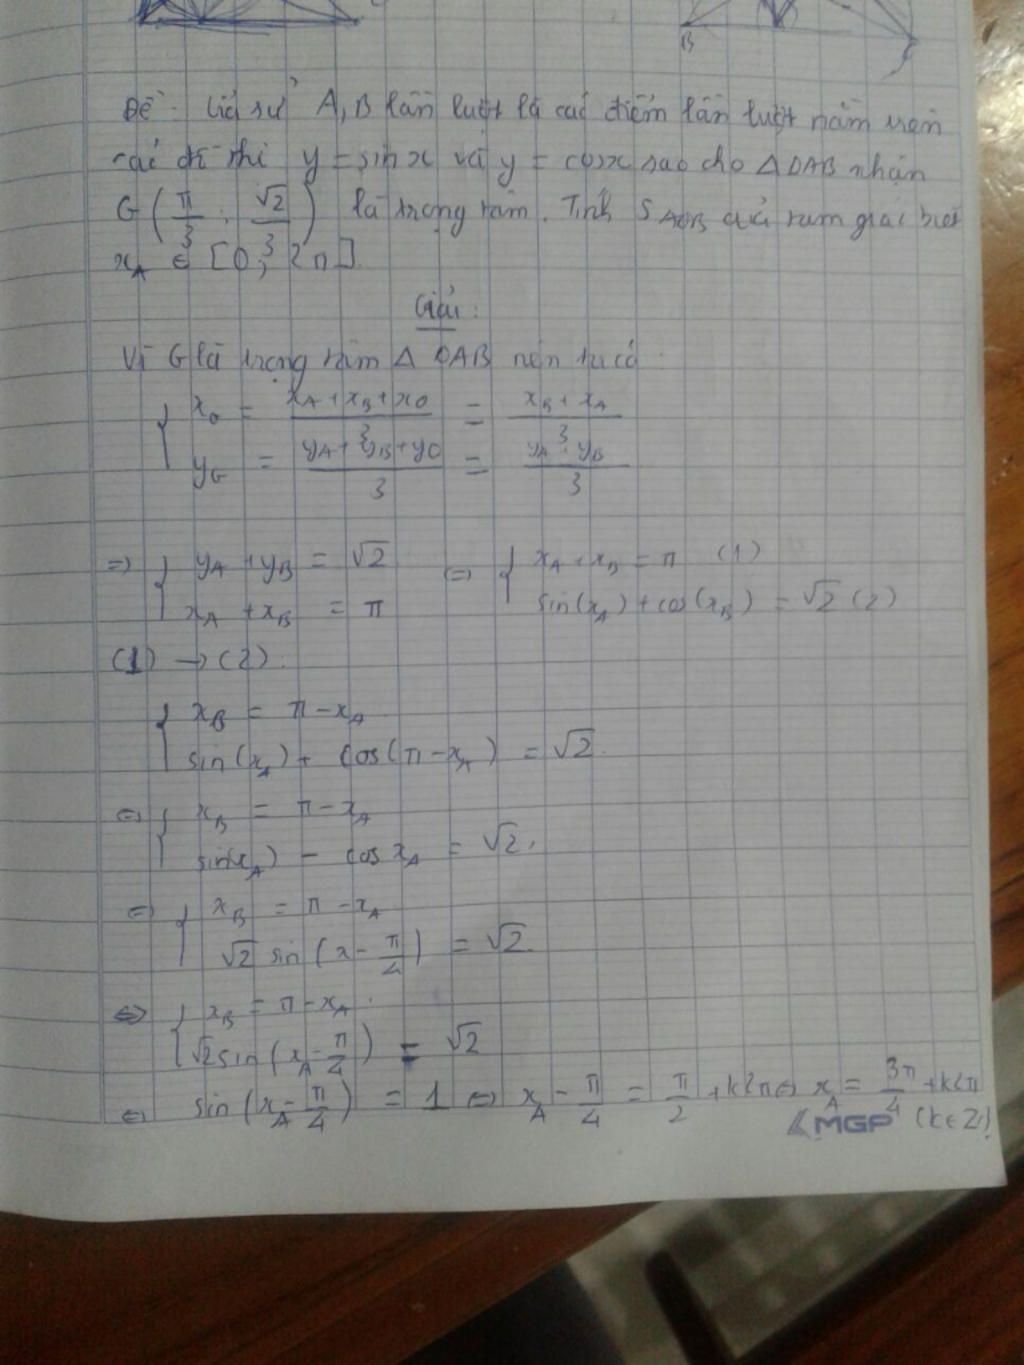 B
Đề: Giả sử A, B lần lượt là các điểm lần lượt nằm trên
các đồ thị y = sin x và y = cos x sao cho Δ OAB nhận
G ( π/3 ; √2/3 ) là trọng tâm. Tính S AOB của tam giác biết
x_A ∈ [0; 2π].
Giải:
Vì G là trọng tâm Δ OAB nên ta có
{ x_G = (x_A + x_B + x_O)/3 = (x_B + x_A)/3
y_G = (y_A + y_B + y_O)/3 = (y_A + y_B)/3
=> { y_A + y_B = √2 <=> { x_A + x_B = π (1)
x_A + x_B = π sin(x_A) + cos(x_B) = √2 (2)
(1) → (2):
{ x_B = π - x_A
sin(x_A) + cos(π - x_A) = √2.
<=> { x_B = π - x_A
sin(x_A) - cos x_A = √2.
<=> { x_B = π - x_A
√2 sin ( x - π/4 ) = √2.
<=> { x_B = π - x_A.
√2 sin ( x_A - π/4 ) = √2
<=> sin ( x_A - π/4 ) = 1 <=> x_A - π/4 = π/2 + k2π <=> x_A = 3π/4 + k2π
MGP (k ∈ Z)